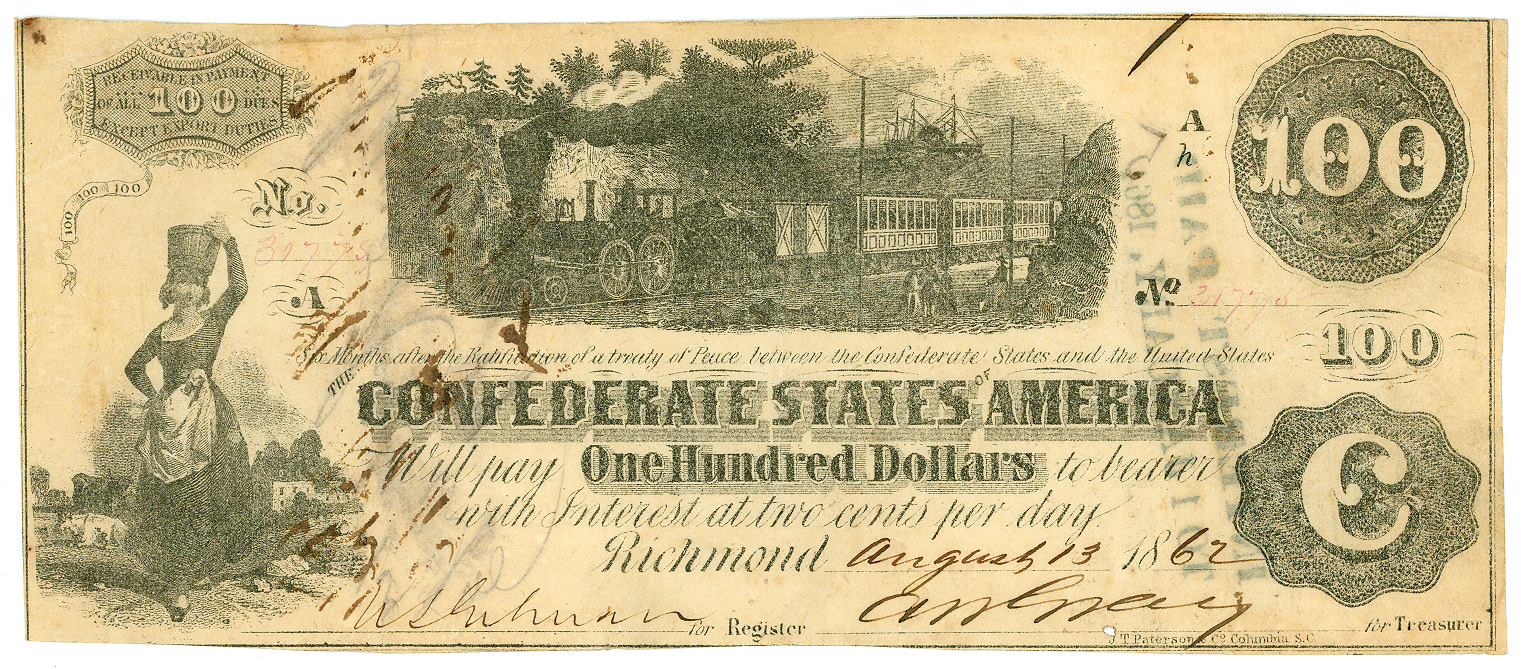 RECEIVABLE IN PAYMENT
OF ALL 100 DUES
EXCEPT EXPORT DUTIES
100 100 100
No.
30775
A
A
h
100
No 31775
100
Six Months after the Ratification of a treaty of Peace between the Confederate States and the United States
THE
CONFEDERATE STATES OF AMERICA
Will pay One Hundred Dollars to bearer
with Interest at two cents per day.
Richmond August 13 1862
C
for Register
for Treasurer
J. T. Paterson & Co Columbia S.C.